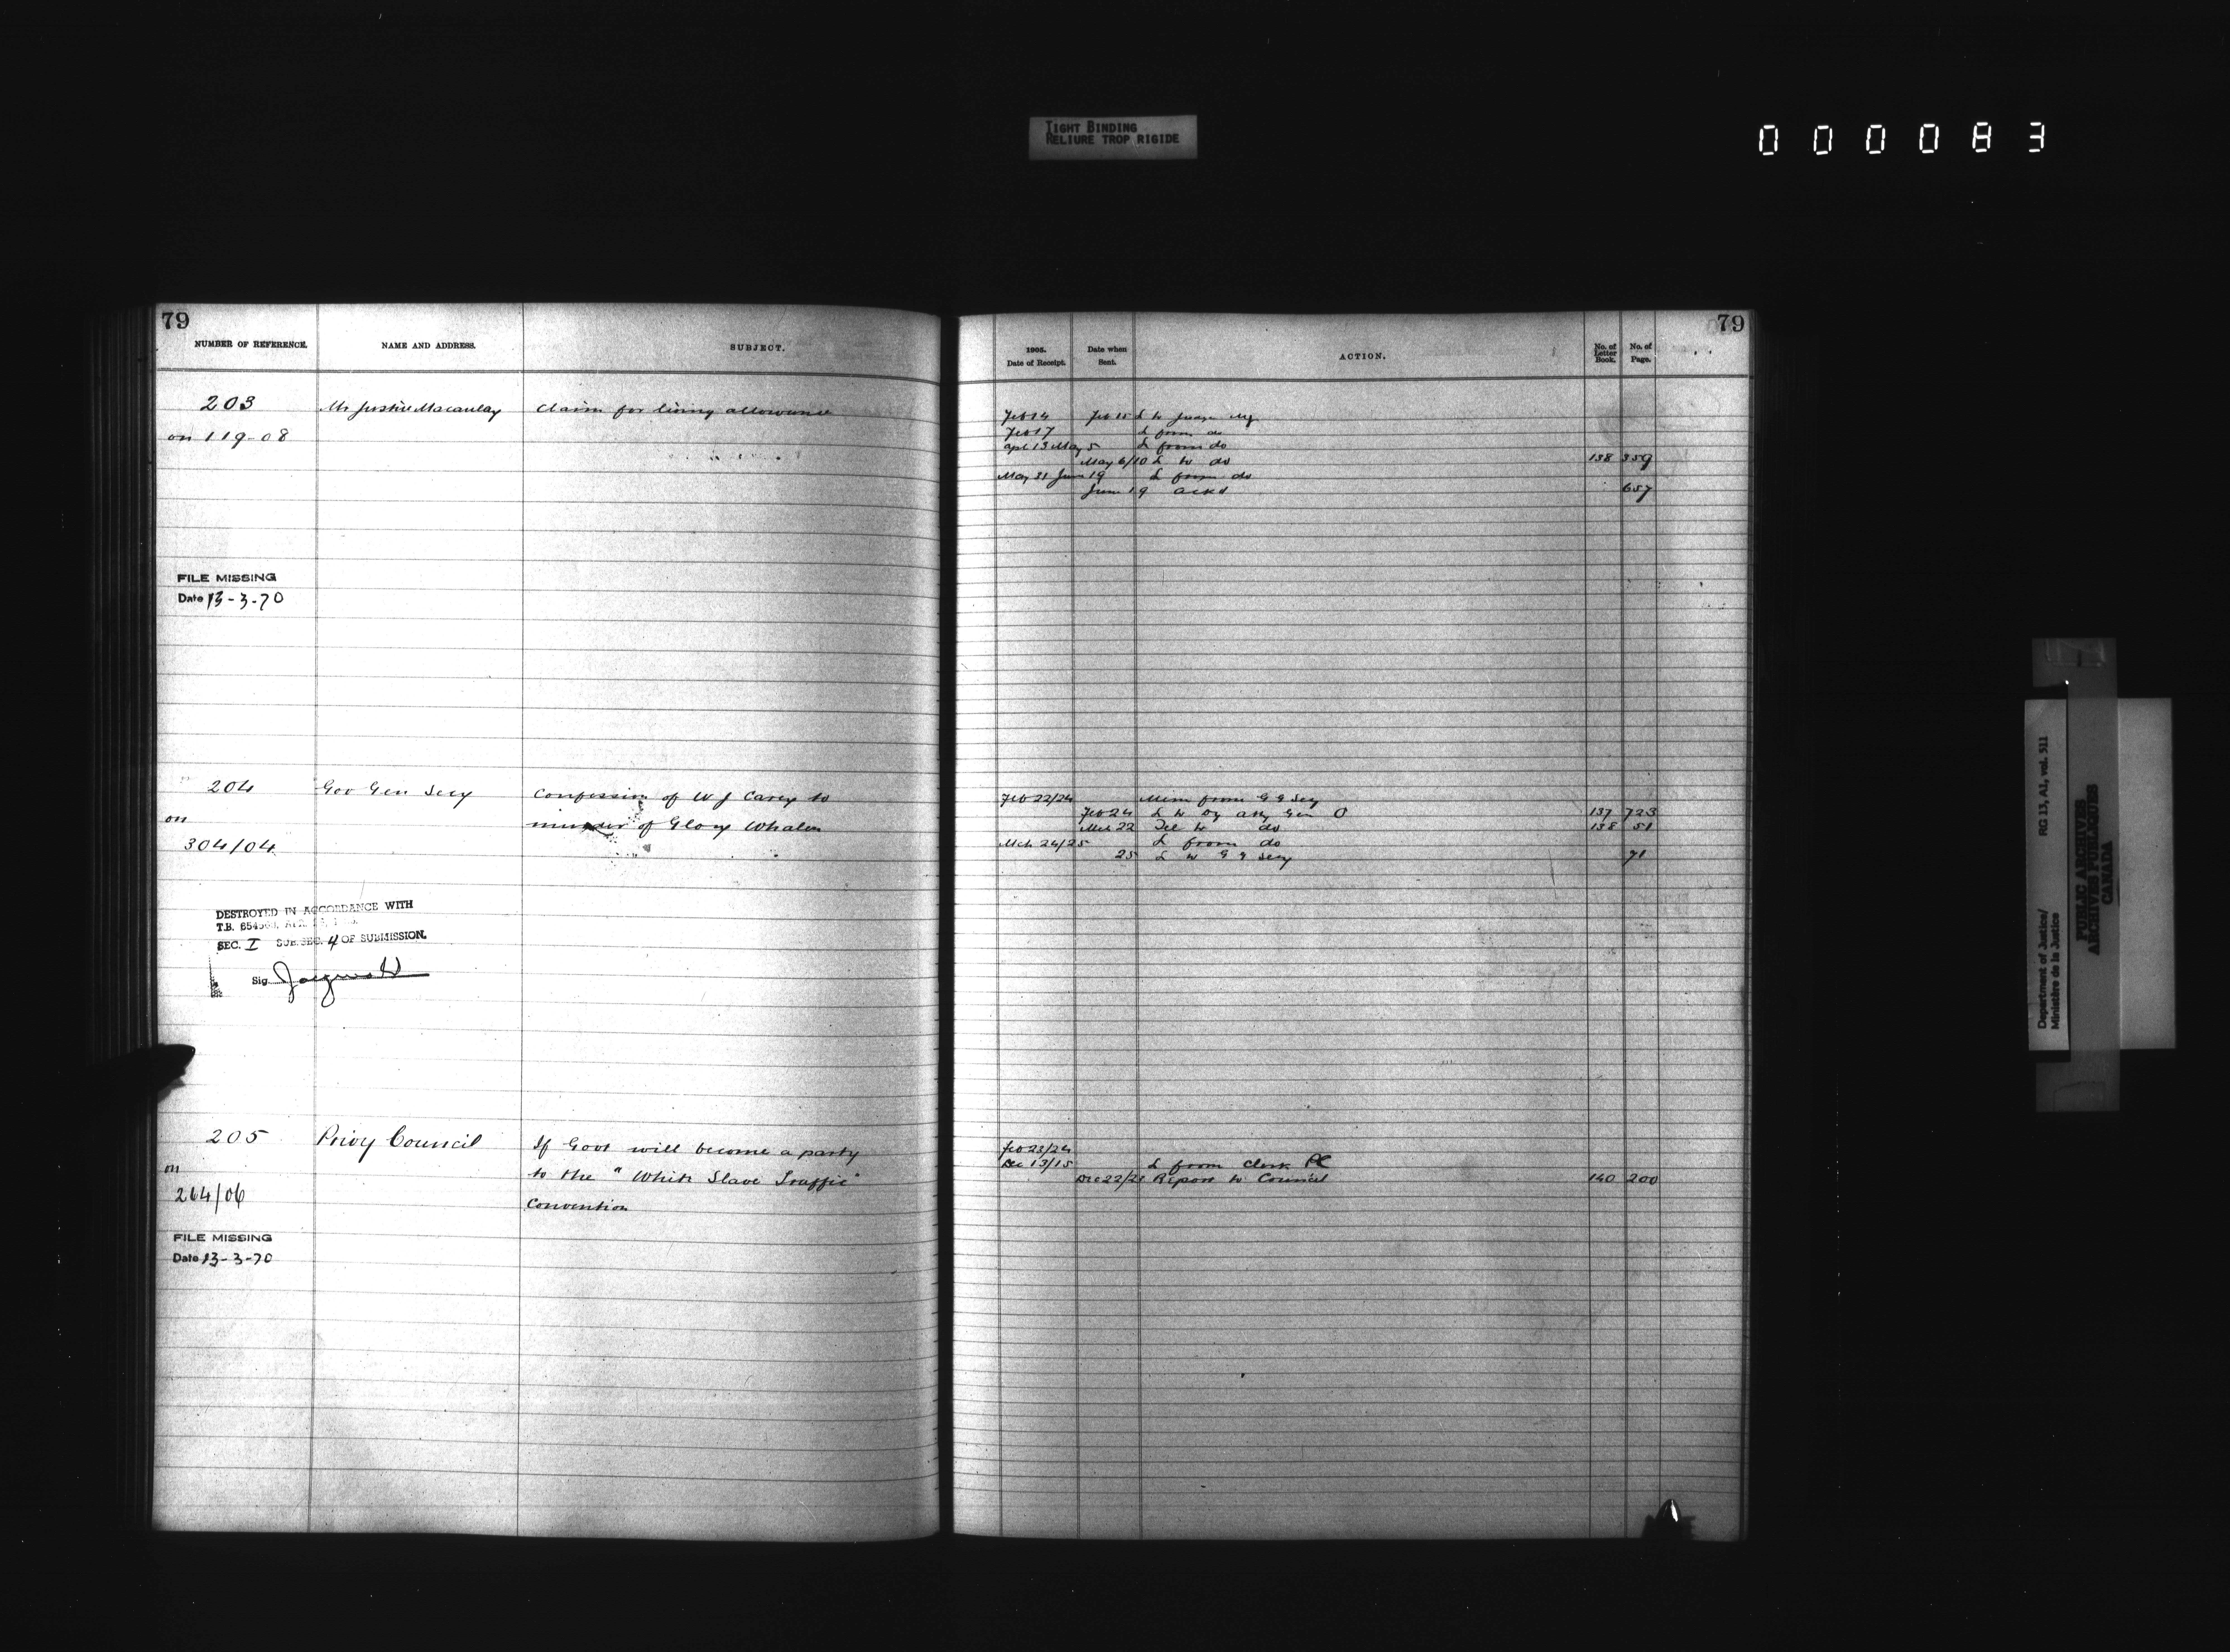 TIGHT BINDING
RELIURE TROP RIGIDE
000083
79
NUMBER OF REFERENCE.
NAME AND ADDRESS.
SUBJECT.
203
Mr Justice Macaulay
Claim for living allowance
on 119-08
FILE MISSING
Date 13-3-70
204
Gov Gen Secy
Confession of W J Carey to
on
murder of Glory Whalen
304/04
DESTROYED IN ACCORDANCE WITH
T.B.
SEC. I SUB.SEC. 4 OF SUBMISSION.
Sig.
205
Privy Council
If Govt will become a party
on
to the "White Slave Traffic"
264/06
Convention
FILE MISSING
Date 13-3-70
79
1905.
Date of Receipt.
Date when
Sent.
ACTION.
No. of
Letter
Book.
No. of
Page.
Feb 14 Feb 15 L to
Feb 17 L from do
Apl 13 May 5 L from do
May 6/10 L to do 138 359
May 31 June 19 L from do
June 19 ackd 657
Feb 22/24 Mem from G G Secy
Feb 24 L to Dy Atty Gen O 137 723
Mch 22 Tel to do 138 51
Mch 24/25 L from do
25 L to G G Secy 71
Feb 23/24
Dec 13/15 L from Clerk PC
Dec 22/21 Report to Council 140 200
Department of Justice/
Ministère de la Justice
RG 13, A1, vol. 511
PUBLIC ARCHIVES
ARCHIVES PUBLIQUES
CANADA